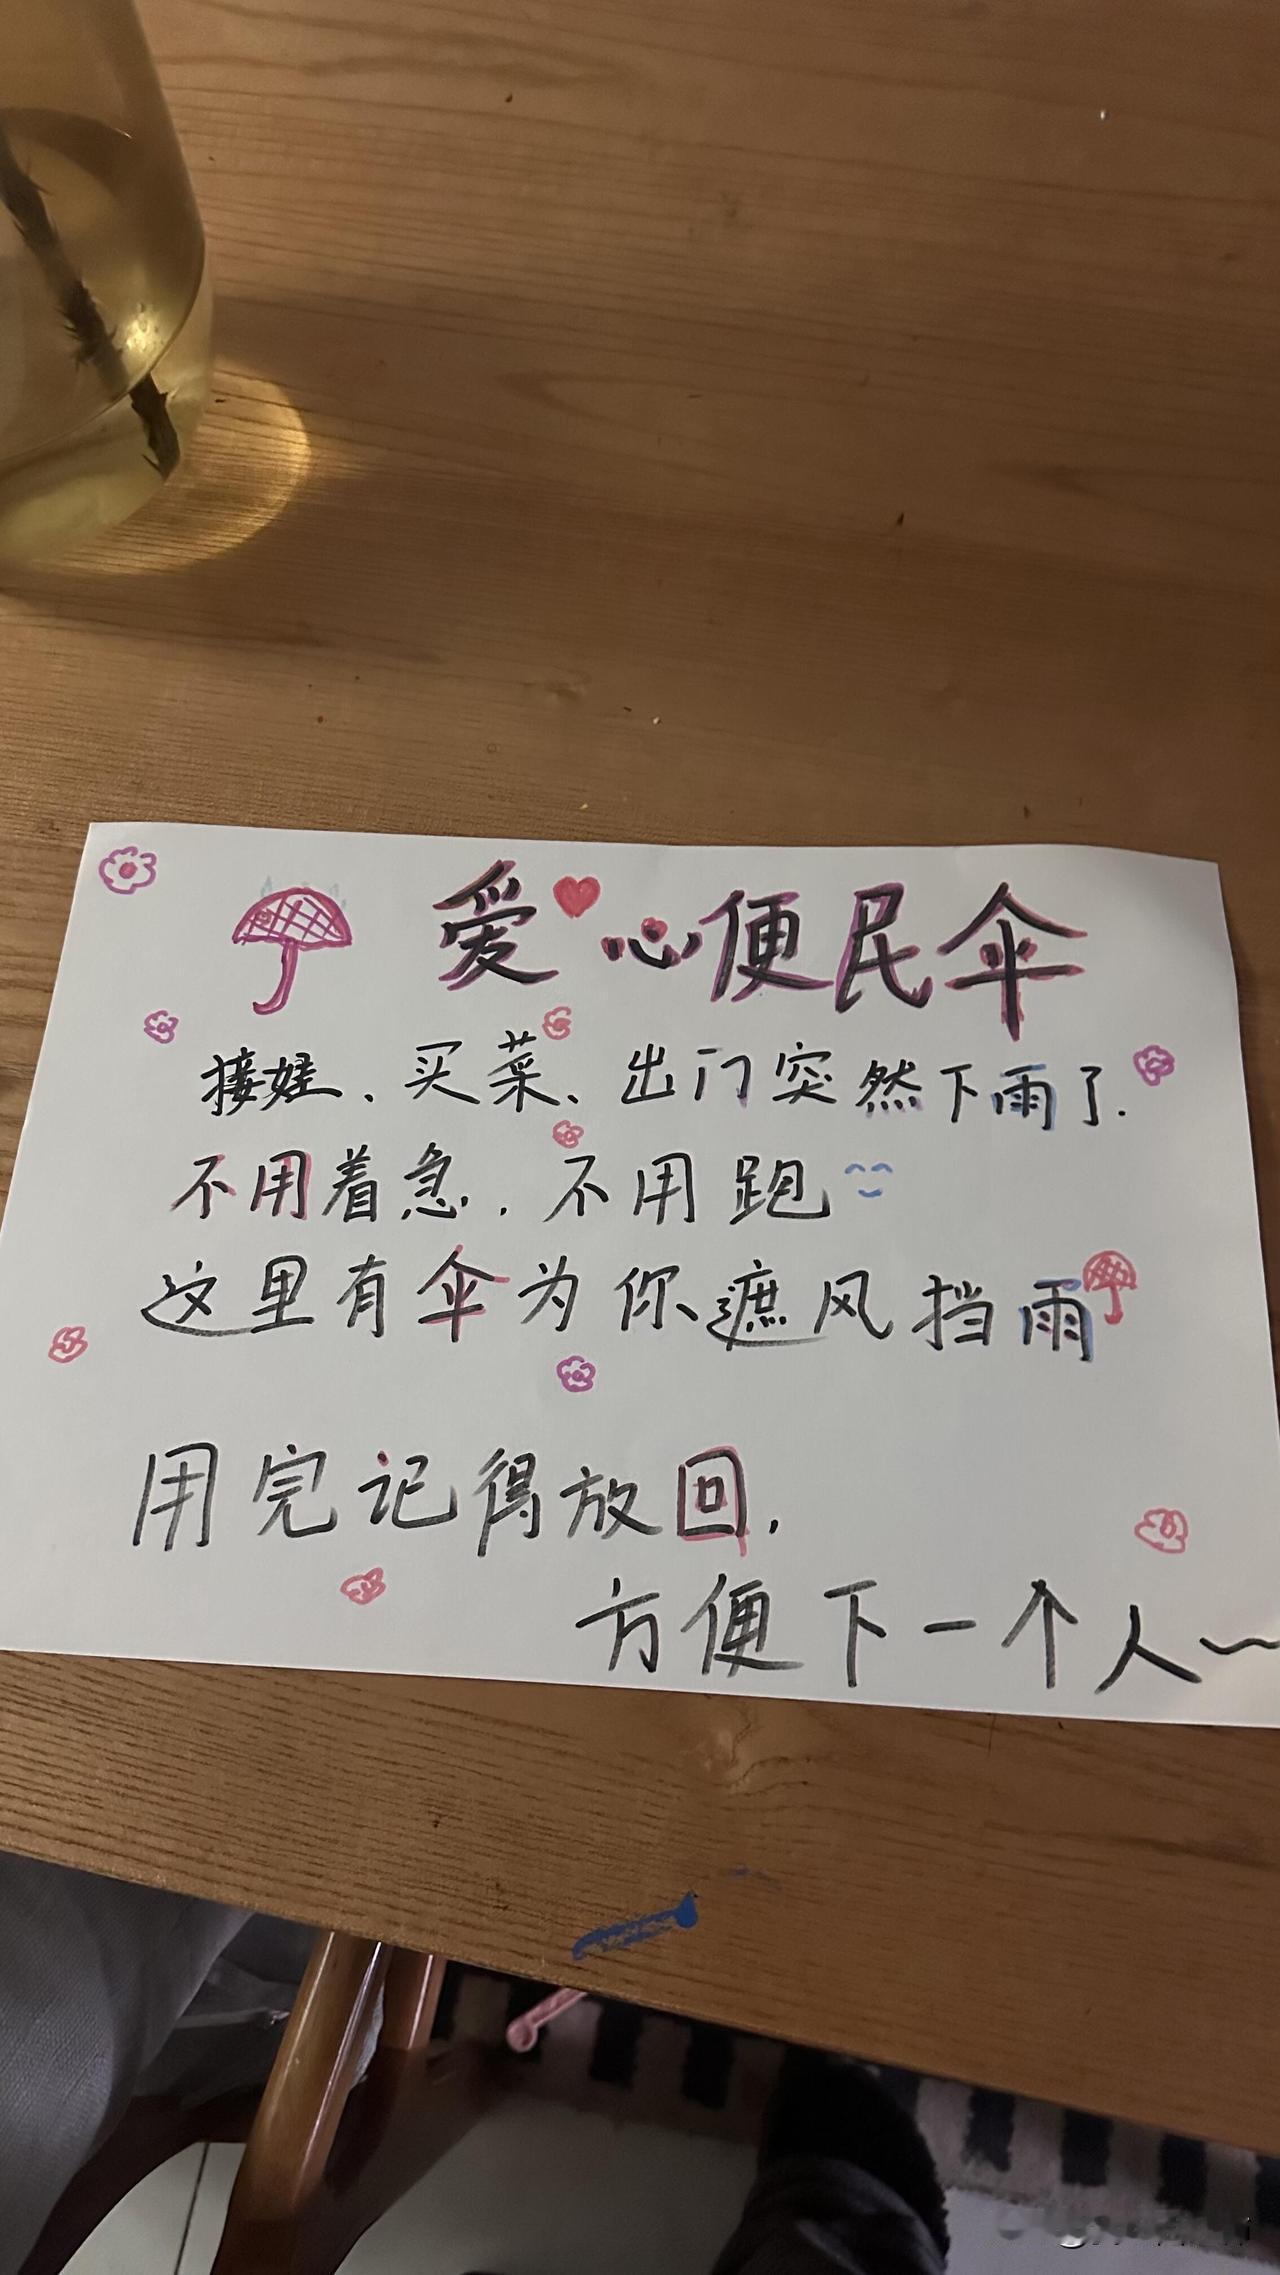 爱心便民伞
接娃、买菜、出门突然下雨了.
不用着急.不用跑
这里有伞为你遮风挡雨
用完记得放回.
方便下一个人~